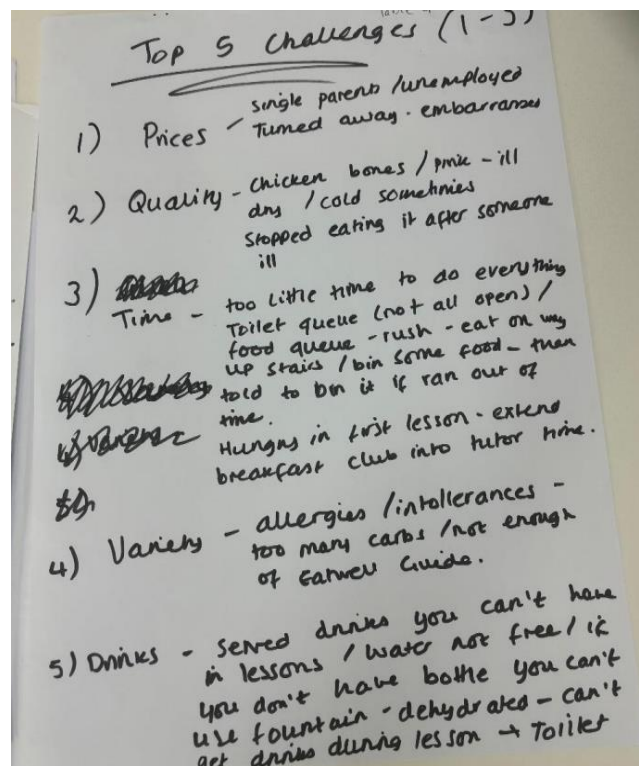 Top 5 Challenges (1-5)
single parents / unemployed
1) Prices - Turned away. embarrasses
2) Quality - Chicken bones / pink - ill
dry / cold sometimes
Stopped eating it after someone
ill
3)
Time - too little time to do everything
Toilet queue (not all open) /
food queue - rush - eat on way
up stairs / bin some food - then
told to bin it if ran out of
time.
Hungry in first lesson - extend
breakfast club into tutor time.
4) Variety - allergies / intollerances -
too many carbs / not enough
of Eatwell Guide.
5) Drinks - Served drinks you can't have
in lessons / water not free / if
you don't have bottle you can't
use fountain - dehydrated - can't
get drinks during lesson → Toilet